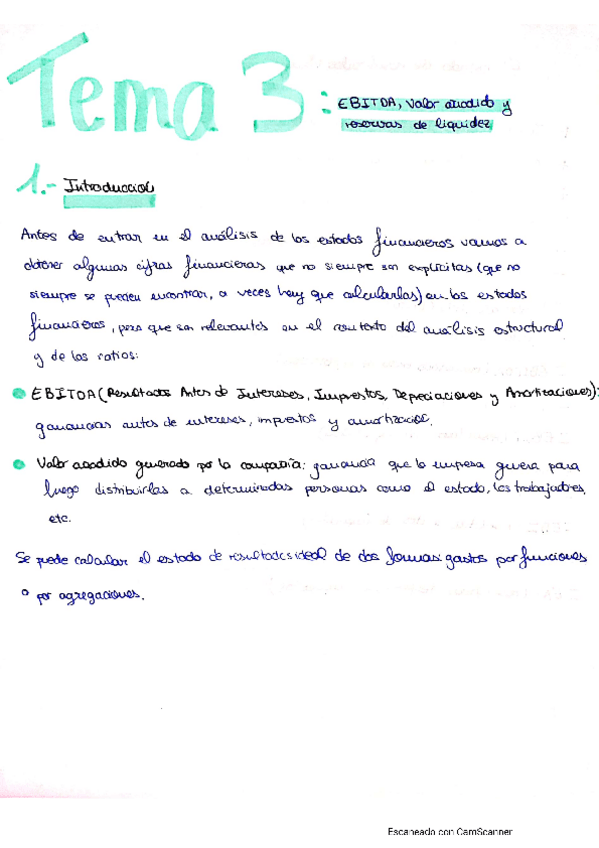 Tema 3: EBITDA, Valor añadido y
reservas de liquidez
1.- Introducción
Antes de entrar en el análisis de los estados financieros vamos a
obtener algunas cifras financieras que no siempre son explícitas (que no
siempre se pueden encontrar, a veces hay que calcularlas) en los estados
financieros, pero que son relevantes en el contexto del análisis estructural
y de los ratios:
EBITDA (Resultados Antes de Intereses, Impuestos, Depreciaciones y Amortizaciones):
ganancias antes de intereses, impuestos y amortización.
Valor añadido generado por la compañía: ganancia que la empresa genera para
luego distribuirlas a determinadas personas como el estado, los trabajadores,
etc.
Se puede calcular el estado de resultados ideal de dos formas: gastos por funciones
o por agregaciones.
Escaneado con CamScanner